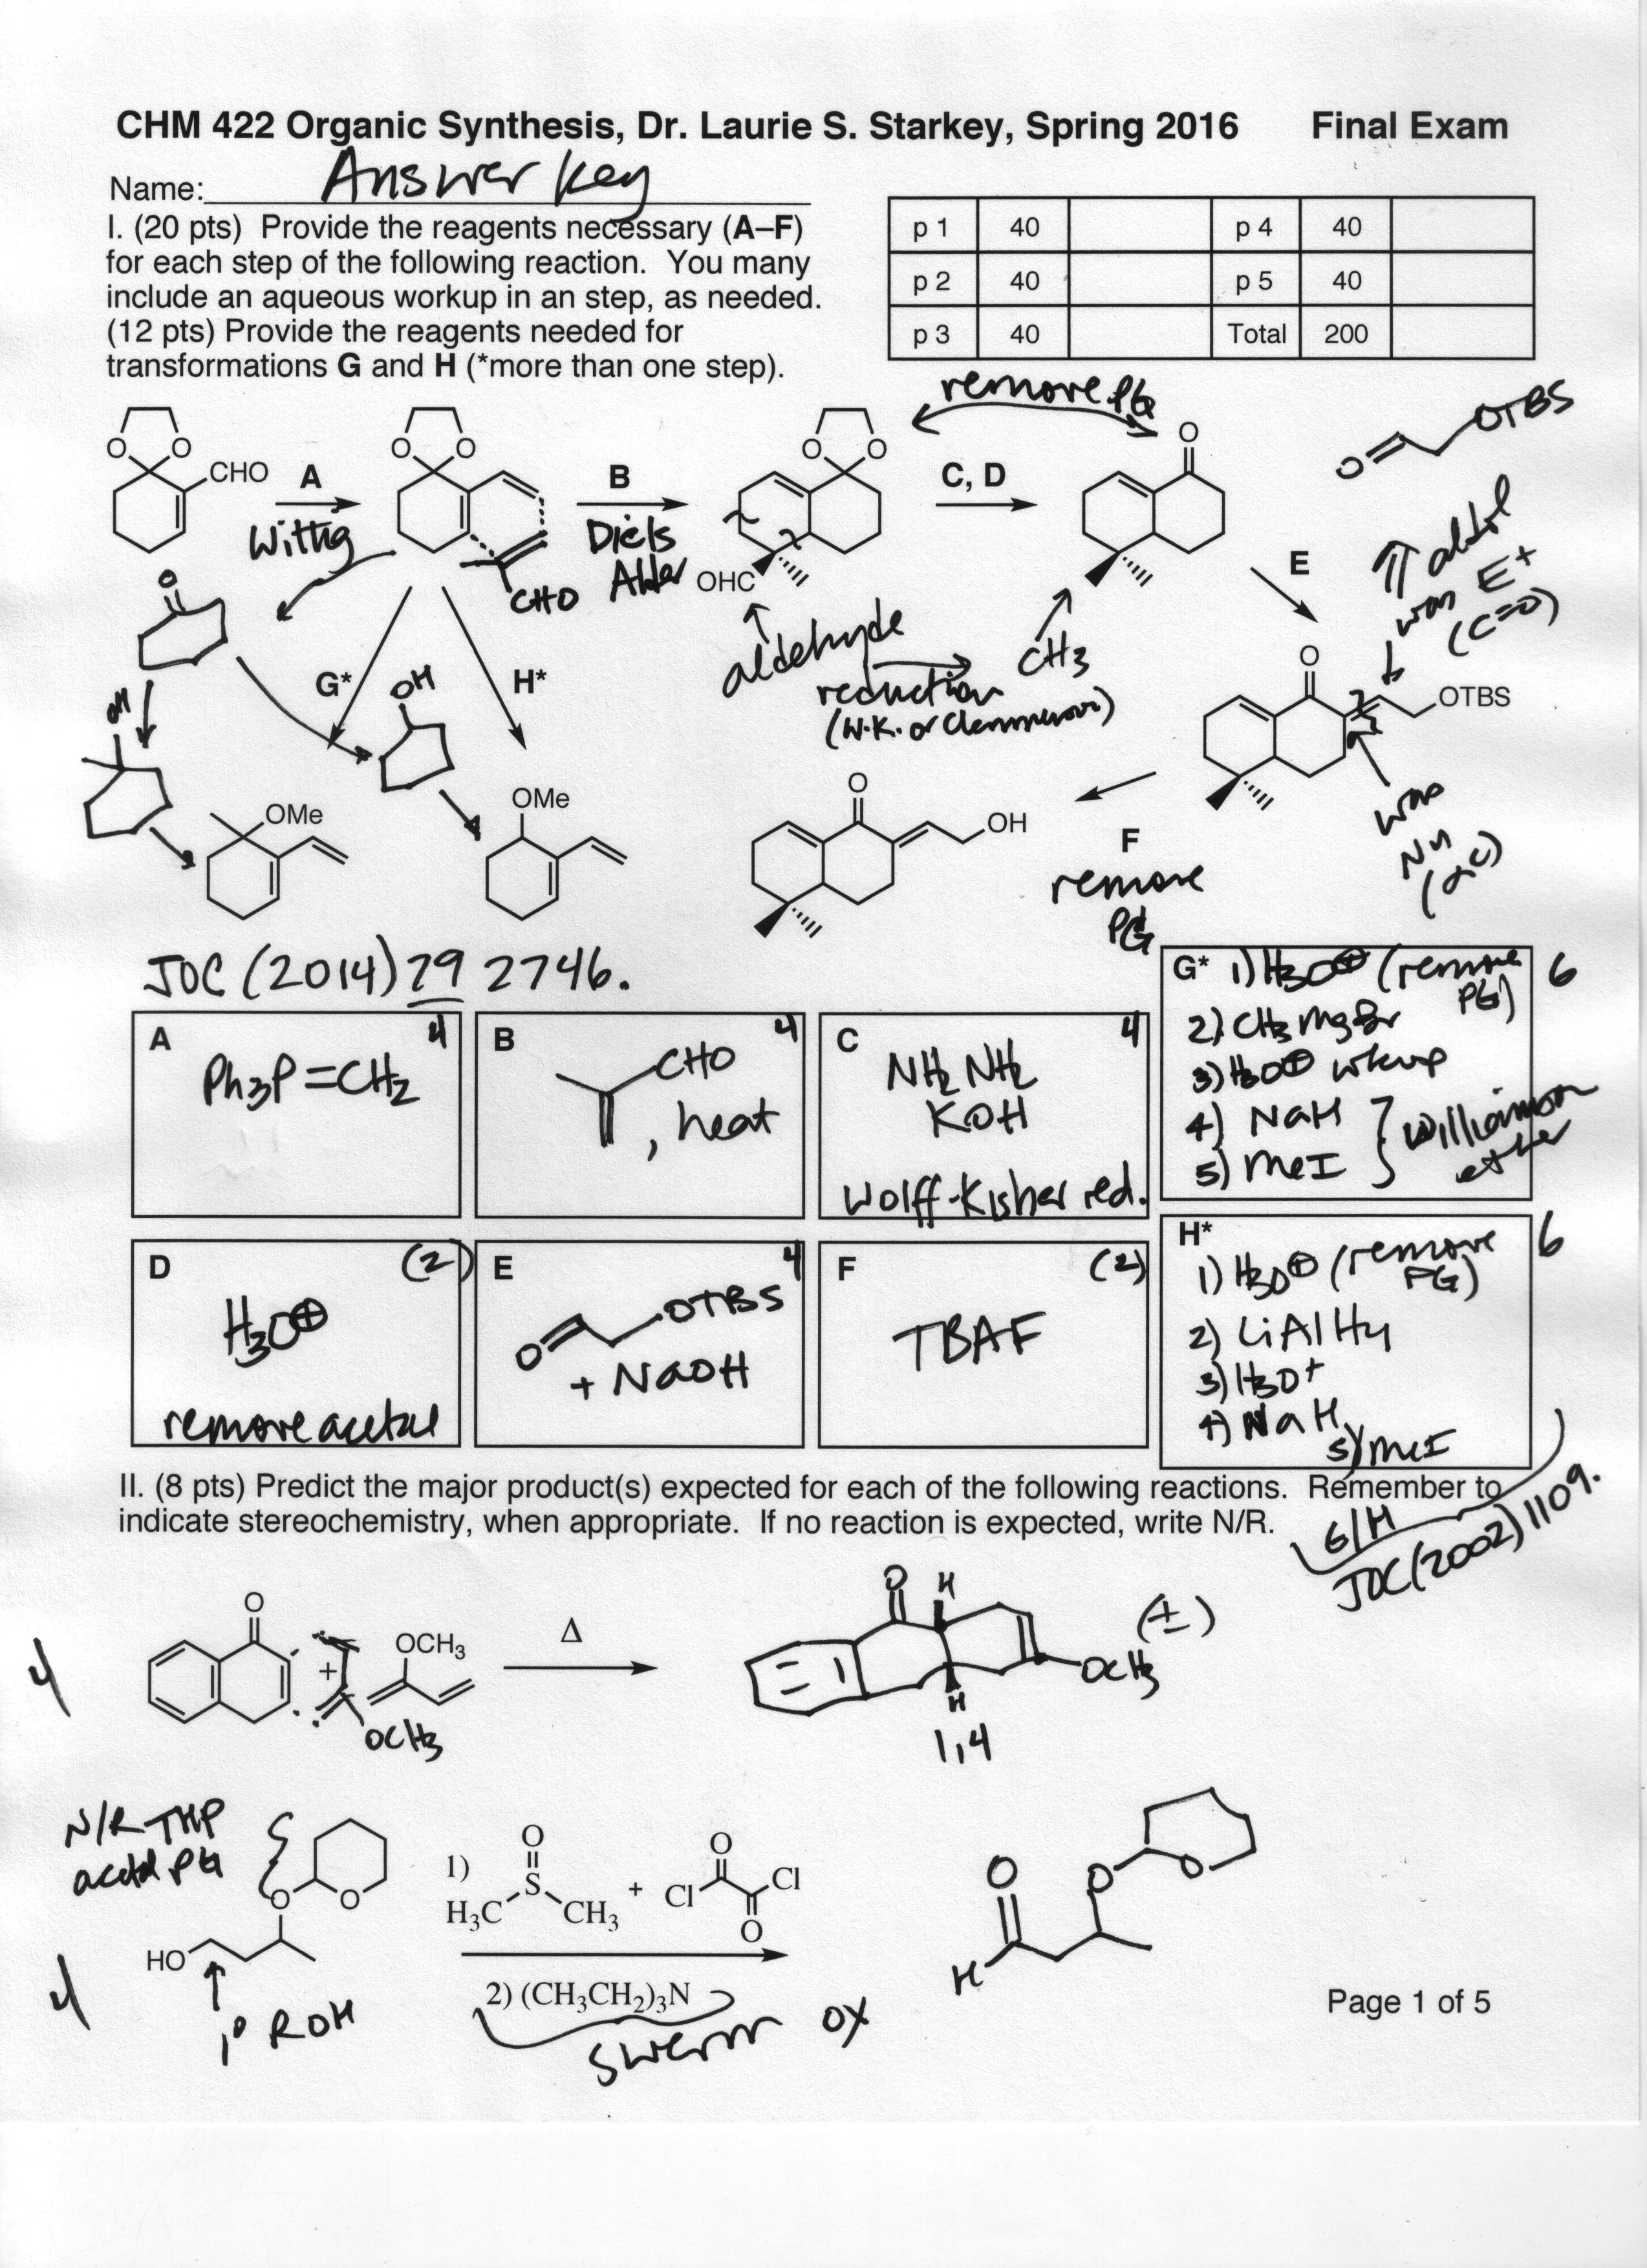 CHM 422 Organic Synthesis, Dr. Laurie S. Starkey, Spring 2016 Final Exam
Name: Answer Key
I. (20 pts) Provide the reagents necessary (A–F)
for each step of the following reaction. You many
include an aqueous workup in an step, as needed.
(12 pts) Provide the reagents needed for
transformations G and H (*more than one step).
p 1 40 p 4 40
p 2 40 p 5 40
p 3 40 Total 200
remove PG
O O CHO
A
Wittig
O O
CHO
B
Diels
Alder
O O
OHC
C, D
O
O OTBS
E
π aldol
was E+
(C=O)
aldehyde
reduction
(W.K. or Clemmensen)
CH3
O
OH
G*
OH
H*
O
OTBS
was
Nu
(αC)
OMe
OMe
O
OH
F
remove
PG
JOC (2014) 79 2746.
A 4
Ph3P=CH2
B 4
CHO
, heat
C 4
NH2NH2
KOH
Wolff-Kisher red.
G* 1) H3O⊕ (remove PG) 6
2) CH3MgBr
3) H3O⊕ wkup
4) NaH
5) MeI } Williamson ether
D (2)
H3O⊕
remove acetal
E 4
O OTBS
+ NaOH
F (2)
TBAF
H* 6
1) H3O⊕ (remove PG)
2) LiAlH4
3) H3O+
4) NaH
5) MeI
G/H
JOC (2002) 1109.
II. (8 pts) Predict the major product(s) expected for each of the following reactions. Remember to
indicate stereochemistry, when appropriate. If no reaction is expected, write N/R.
4
O
+
OCH3
OCH3
Δ
O H
H
OCH3
(±)
1,4
N/R THP
acetal PG
O O
HO
4
1° ROH
1) O
H3C S CH3 + Cl O O Cl
2) (CH3CH2)3N
Swern ox
O H
O O
Page 1 of 5